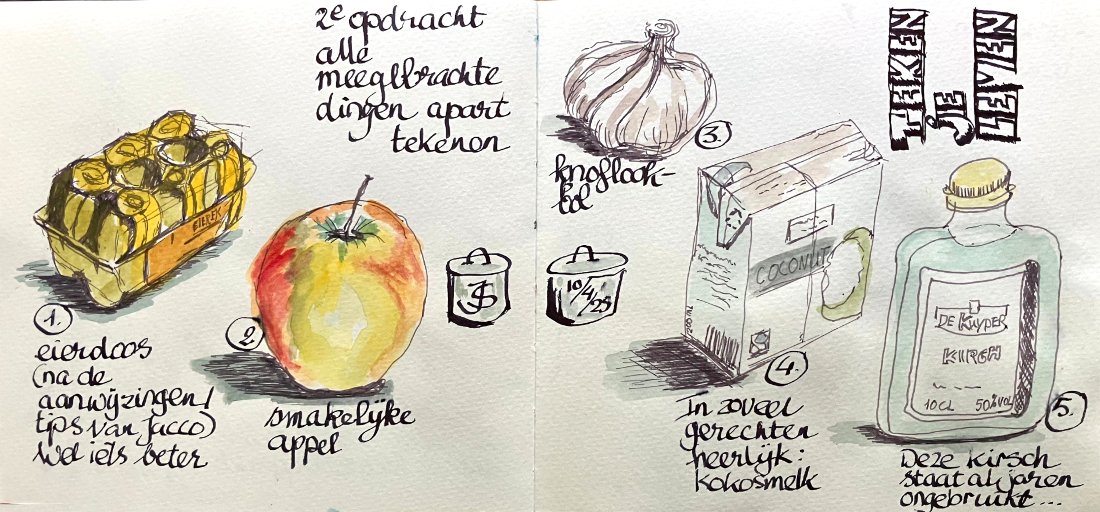 2e opdracht
alle
meegebrachte
dingen apart
tekenen
EIEREN
1.
eierdoos
(na de
aanwijzingen/
tips van Jacco)
wel iets beter
2.
smakelijke
appel
JS
3.
knoflook-
bol
10/4/25
COCONUT
200 ML
4.
In zoveel
gerechten
heerlijk:
kokosmelk
TEKEN
JE
LEVEN
DE KUYPER
KIRSH
10 CL 50%VOL
5.
Deze kirsch
staat al jaren
ongebruikt...